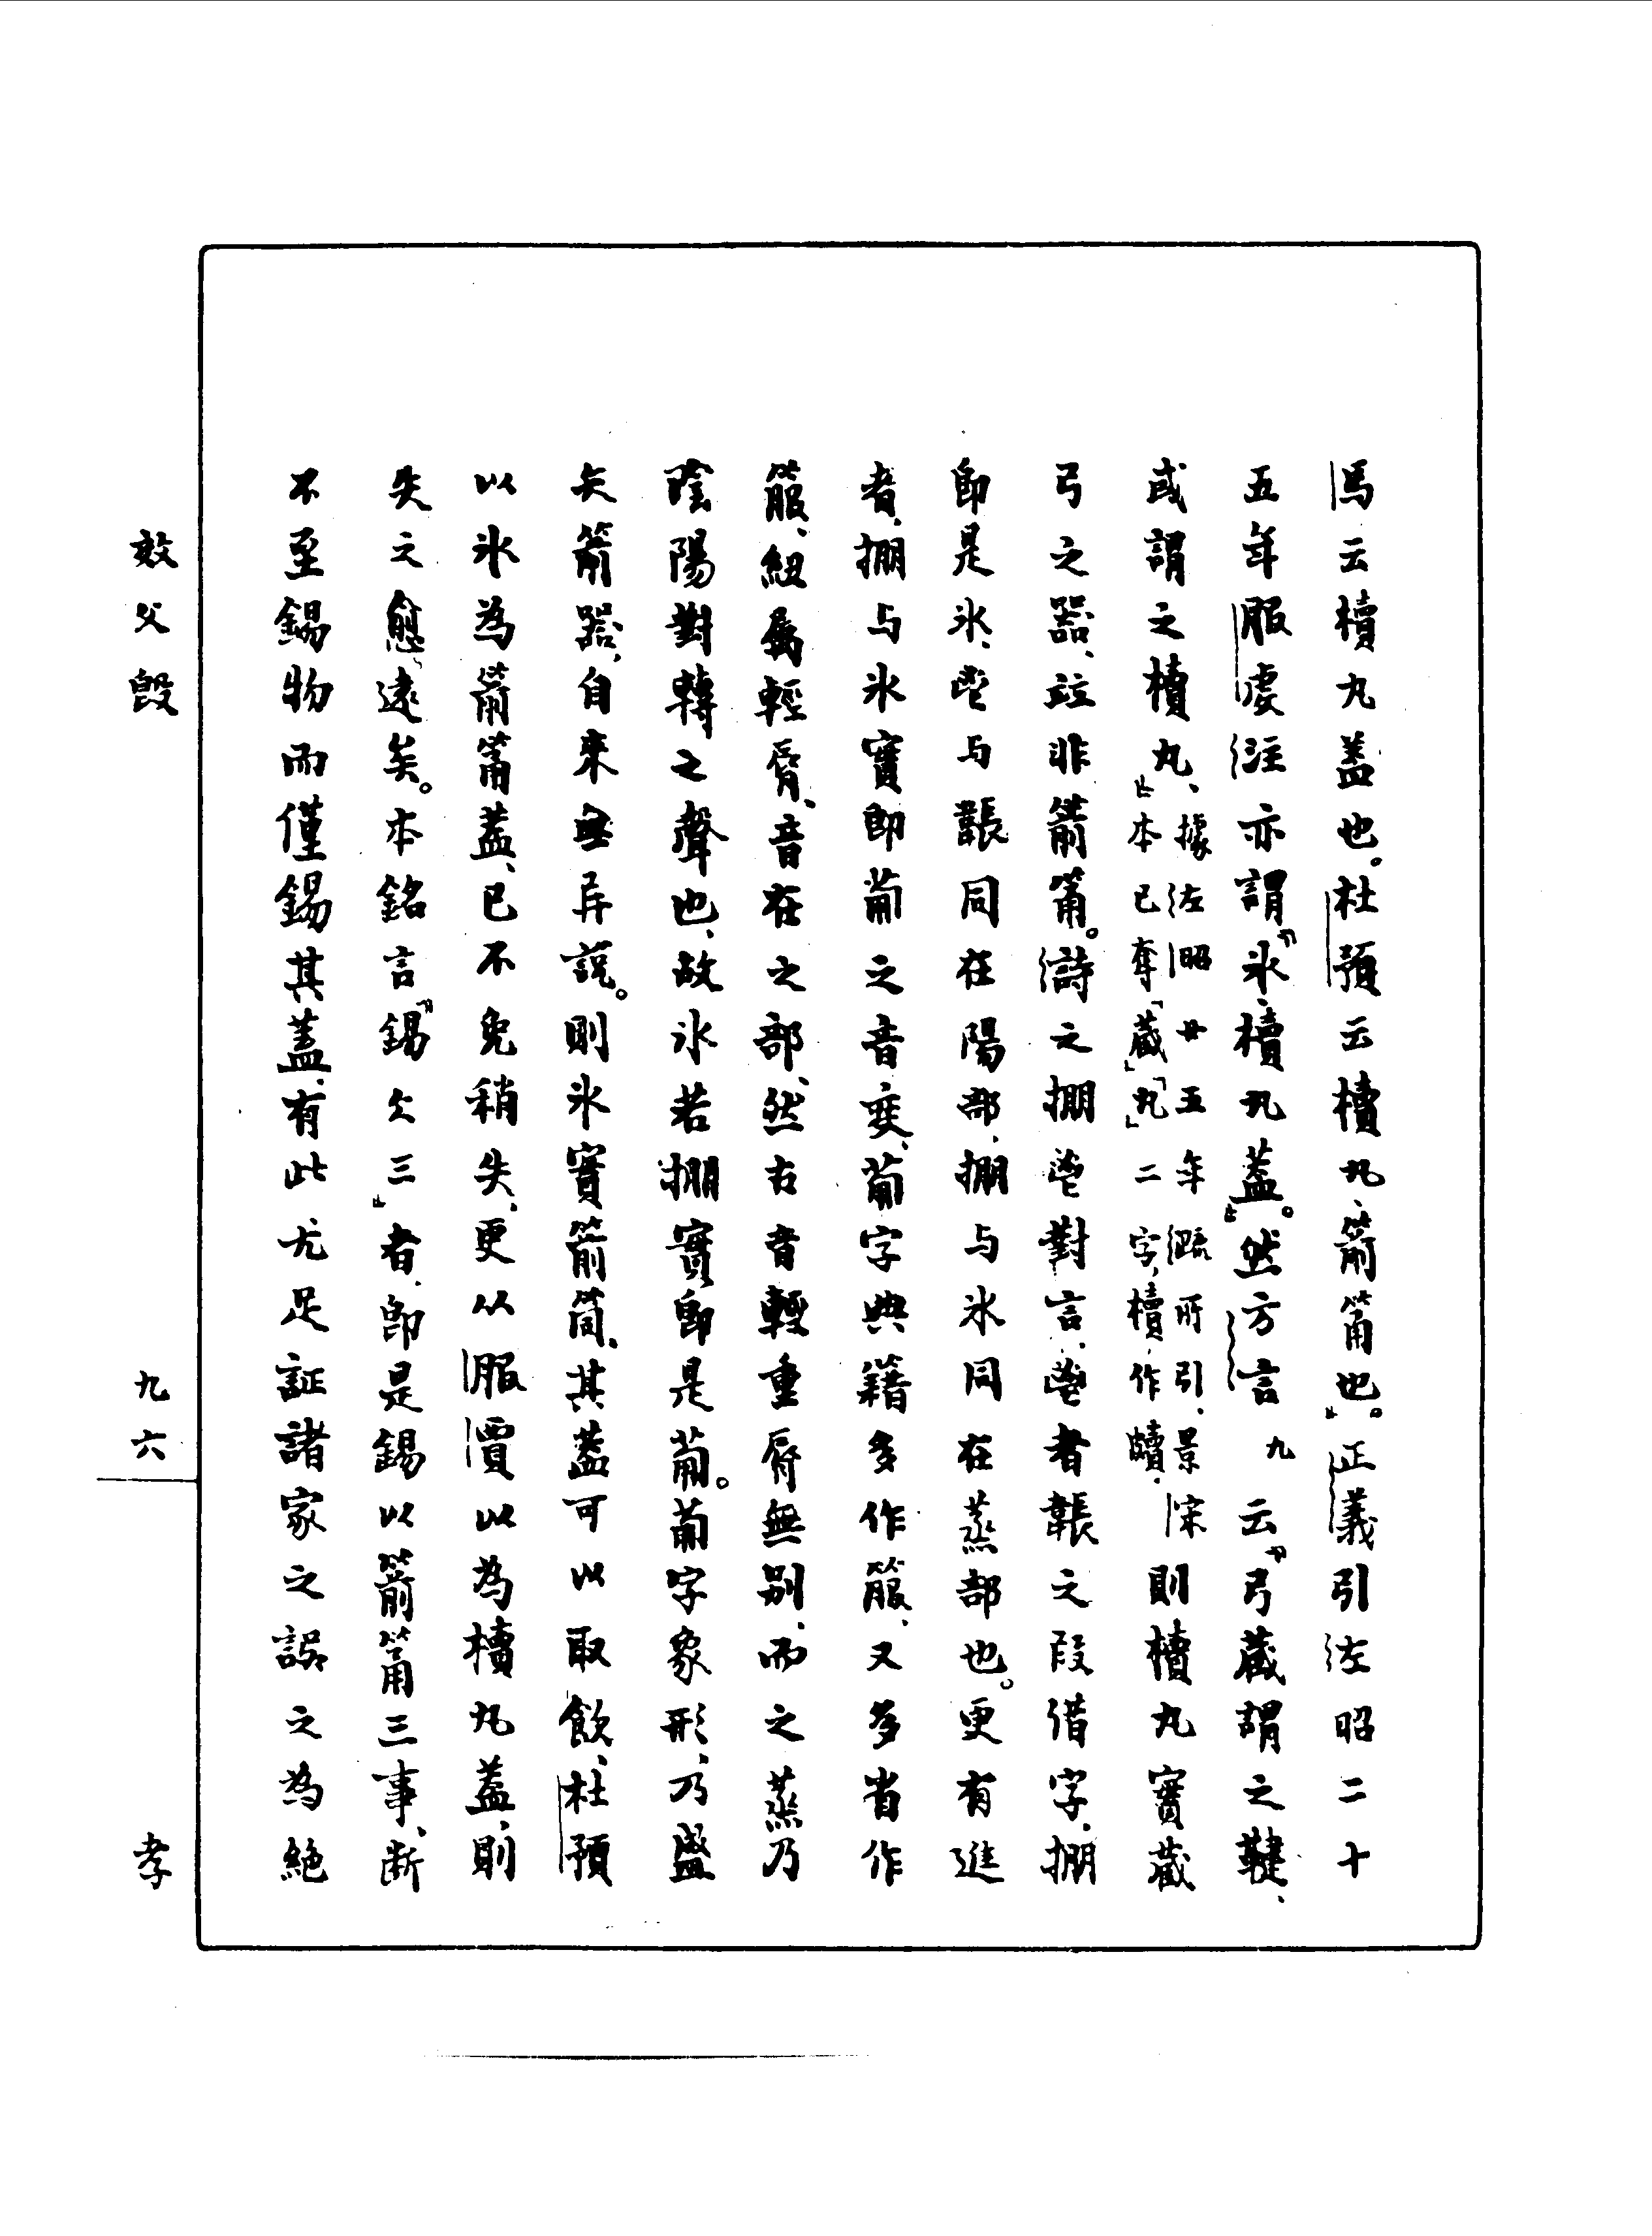 馬云櫝丸蓋也。杜預云櫝丸、箭筩也。』正義引左昭二十
五年服虔注亦謂『氷、櫝丸蓋』。然方言九云『弓藏謂之鞬、
或謂之櫝丸、』據左昭廿五年疏所引、景宋本已奪「藏」「丸」二字,櫝作皾.則櫝丸實藏
弓之器、竝非箭筩。詩之掤鬯對言、鬯者韔之叚借字、掤
即是氷、鬯与韔同在陽部、掤与氷同在蒸部也。更有進
者、掤与氷實即葡之音变、葡字典籍多作箙、又多省作
服、紐屬輕脣、音在之部、然古音輕重脣無別、而之蒸乃
陰陽對轉之聲也、故氷若掤實即是葡。葡字象形、乃盛
矢箭器、自來無异說。則氷實箭筩、其蓋可以取飲、杜預
以氷為箭筩蓋、已不免稍失、更从服賈以為櫝丸蓋、則
失之愈遠矣。本銘言『錫仌三』者、即是錫以箭筩三事、断
不至錫物而僅錫其蓋、有此尤足証諸家之誤之為絶
效父𣪘
九六
孝